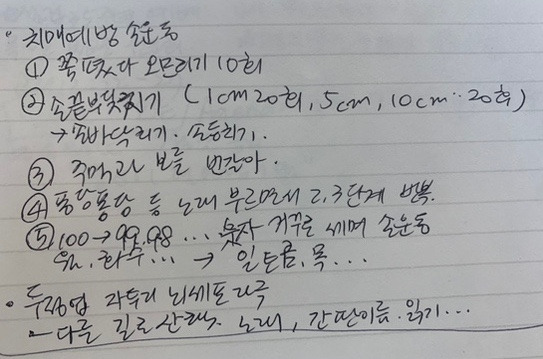 • 치매예방 손운동
① 쫙 폈다 오므리기 10회
② 손끝부딪치기 (1cm 20회, 5cm, 10cm.. 20회)
→ 손바닥치기. 손등치기.
③ 주먹과 보를 번갈아.
④ 퐁당퐁당 등 노래 부르면서 2, 3단계 반복.
⑤ 100 → 99, 98 ... 숫자 거꾸로 세며 손운동
월, 화, 수 ... → 일 토 금, 목 ...
• 두정엽 자투리 뇌세포자극
- 다른 길로 산책. 노래, 간판이름. 읽기...